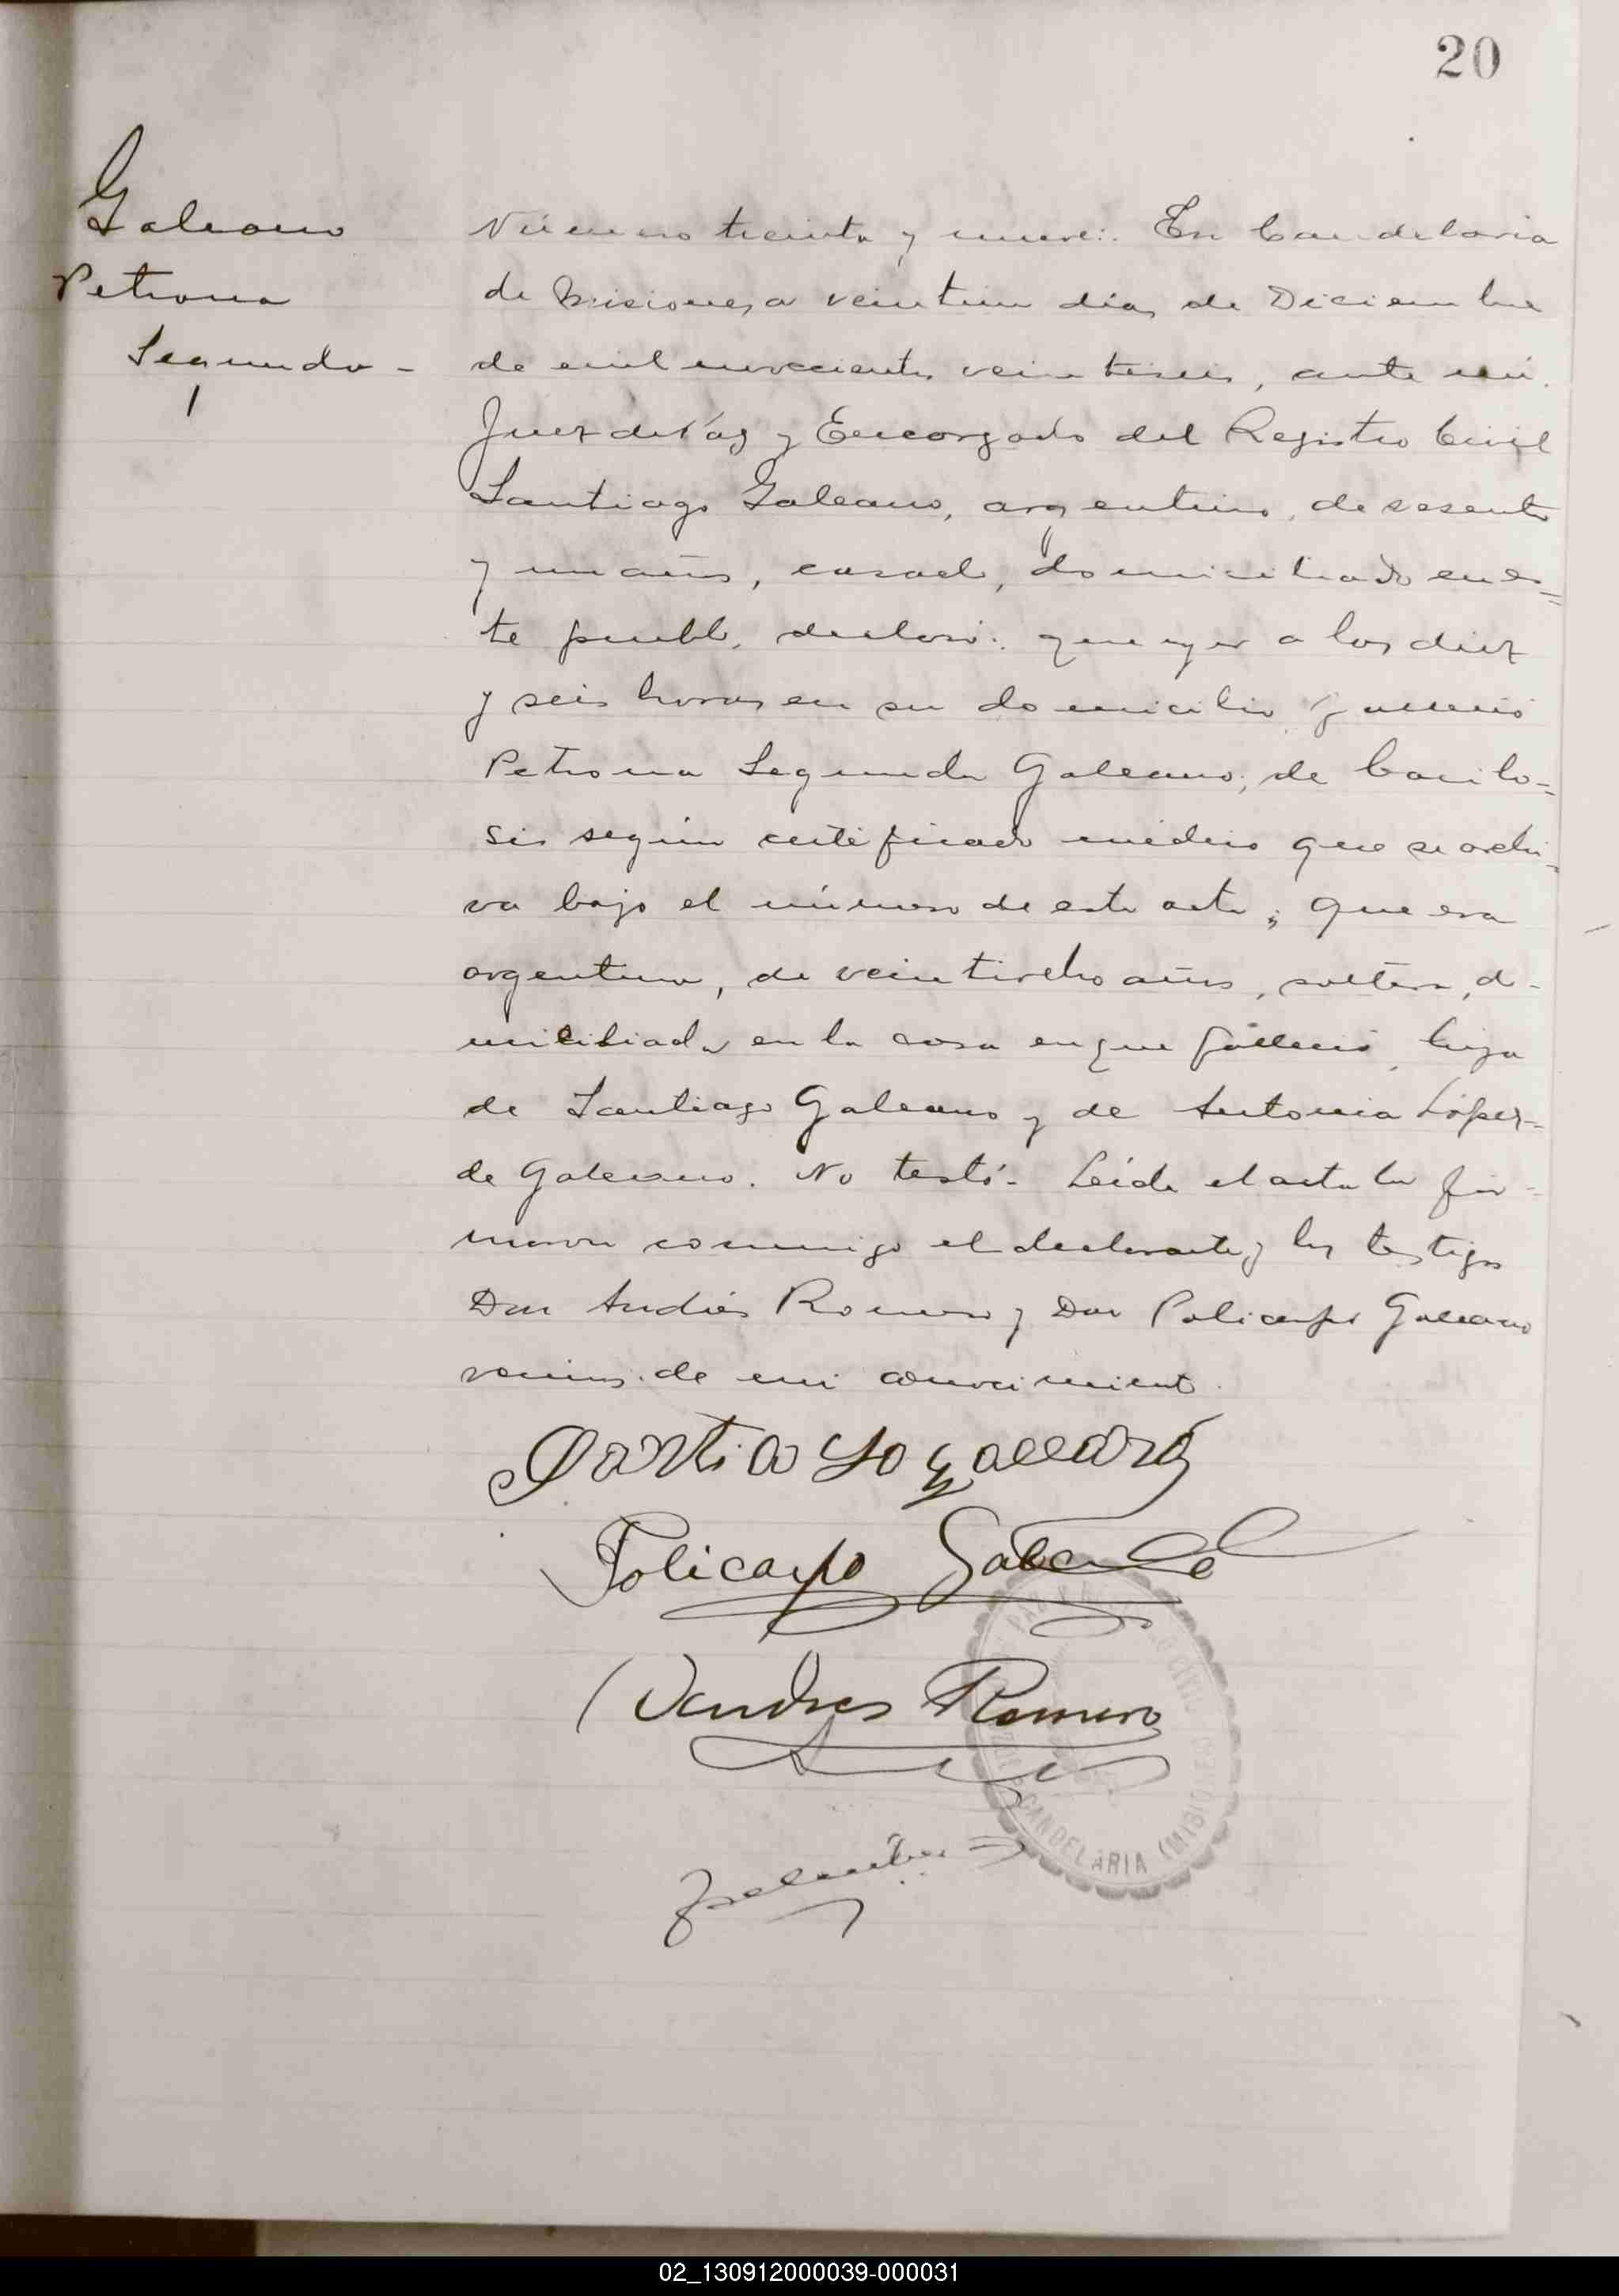 20
Galeano
Petrona
Segunda -
Número treinta y nueve:. En Candelaria
de Misiones, a veintiun días de Diciembre
de mil novecientos veintiseis, ante mí.
Juez de Paz y Encargado del Registro Civil
Santiago Galeano, argentino, de sesenta
y un años, casado, domiciliado en es=
te pueblo, declaró: que ayer a las diez
y seis horas en su domicilio falleció
Petrona Segunda Galeano, de bacilo=
sis según certificado médico que se archi=
va bajo el número de este acta; que era
argentina, de veintiocho años, soltera, do-
miciliada en la casa en que falleció, hija
de Santiago Galeano y de Antonia López=
de Galeano. No testó- Leída el acta la fir=
maron conmigo el declarante y los testigos
Don Andrés Romero y Don Policarpo Galeano
vecinos de mi conocimiento.
Santiago galeano
Policarpo Galeano
Andres Romero
CANDELARIA (MISIONES)
02_130912000039-000031